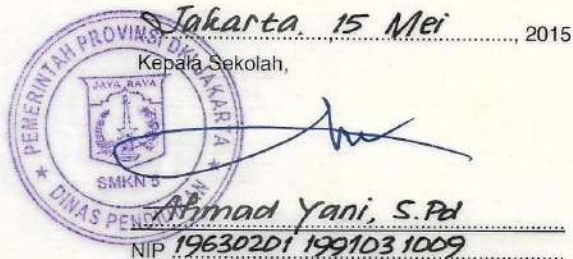 Jakarta, 15 Mei, 2015
Kepala Sekolah,
PEMERINTAH PROVINSI DKI JAKARTA
JAYA RAYA
SMKN 5
DINAS PENDIDIKAN
Ahmad Yani, S.Pd
NIP 19630201 199103 1009